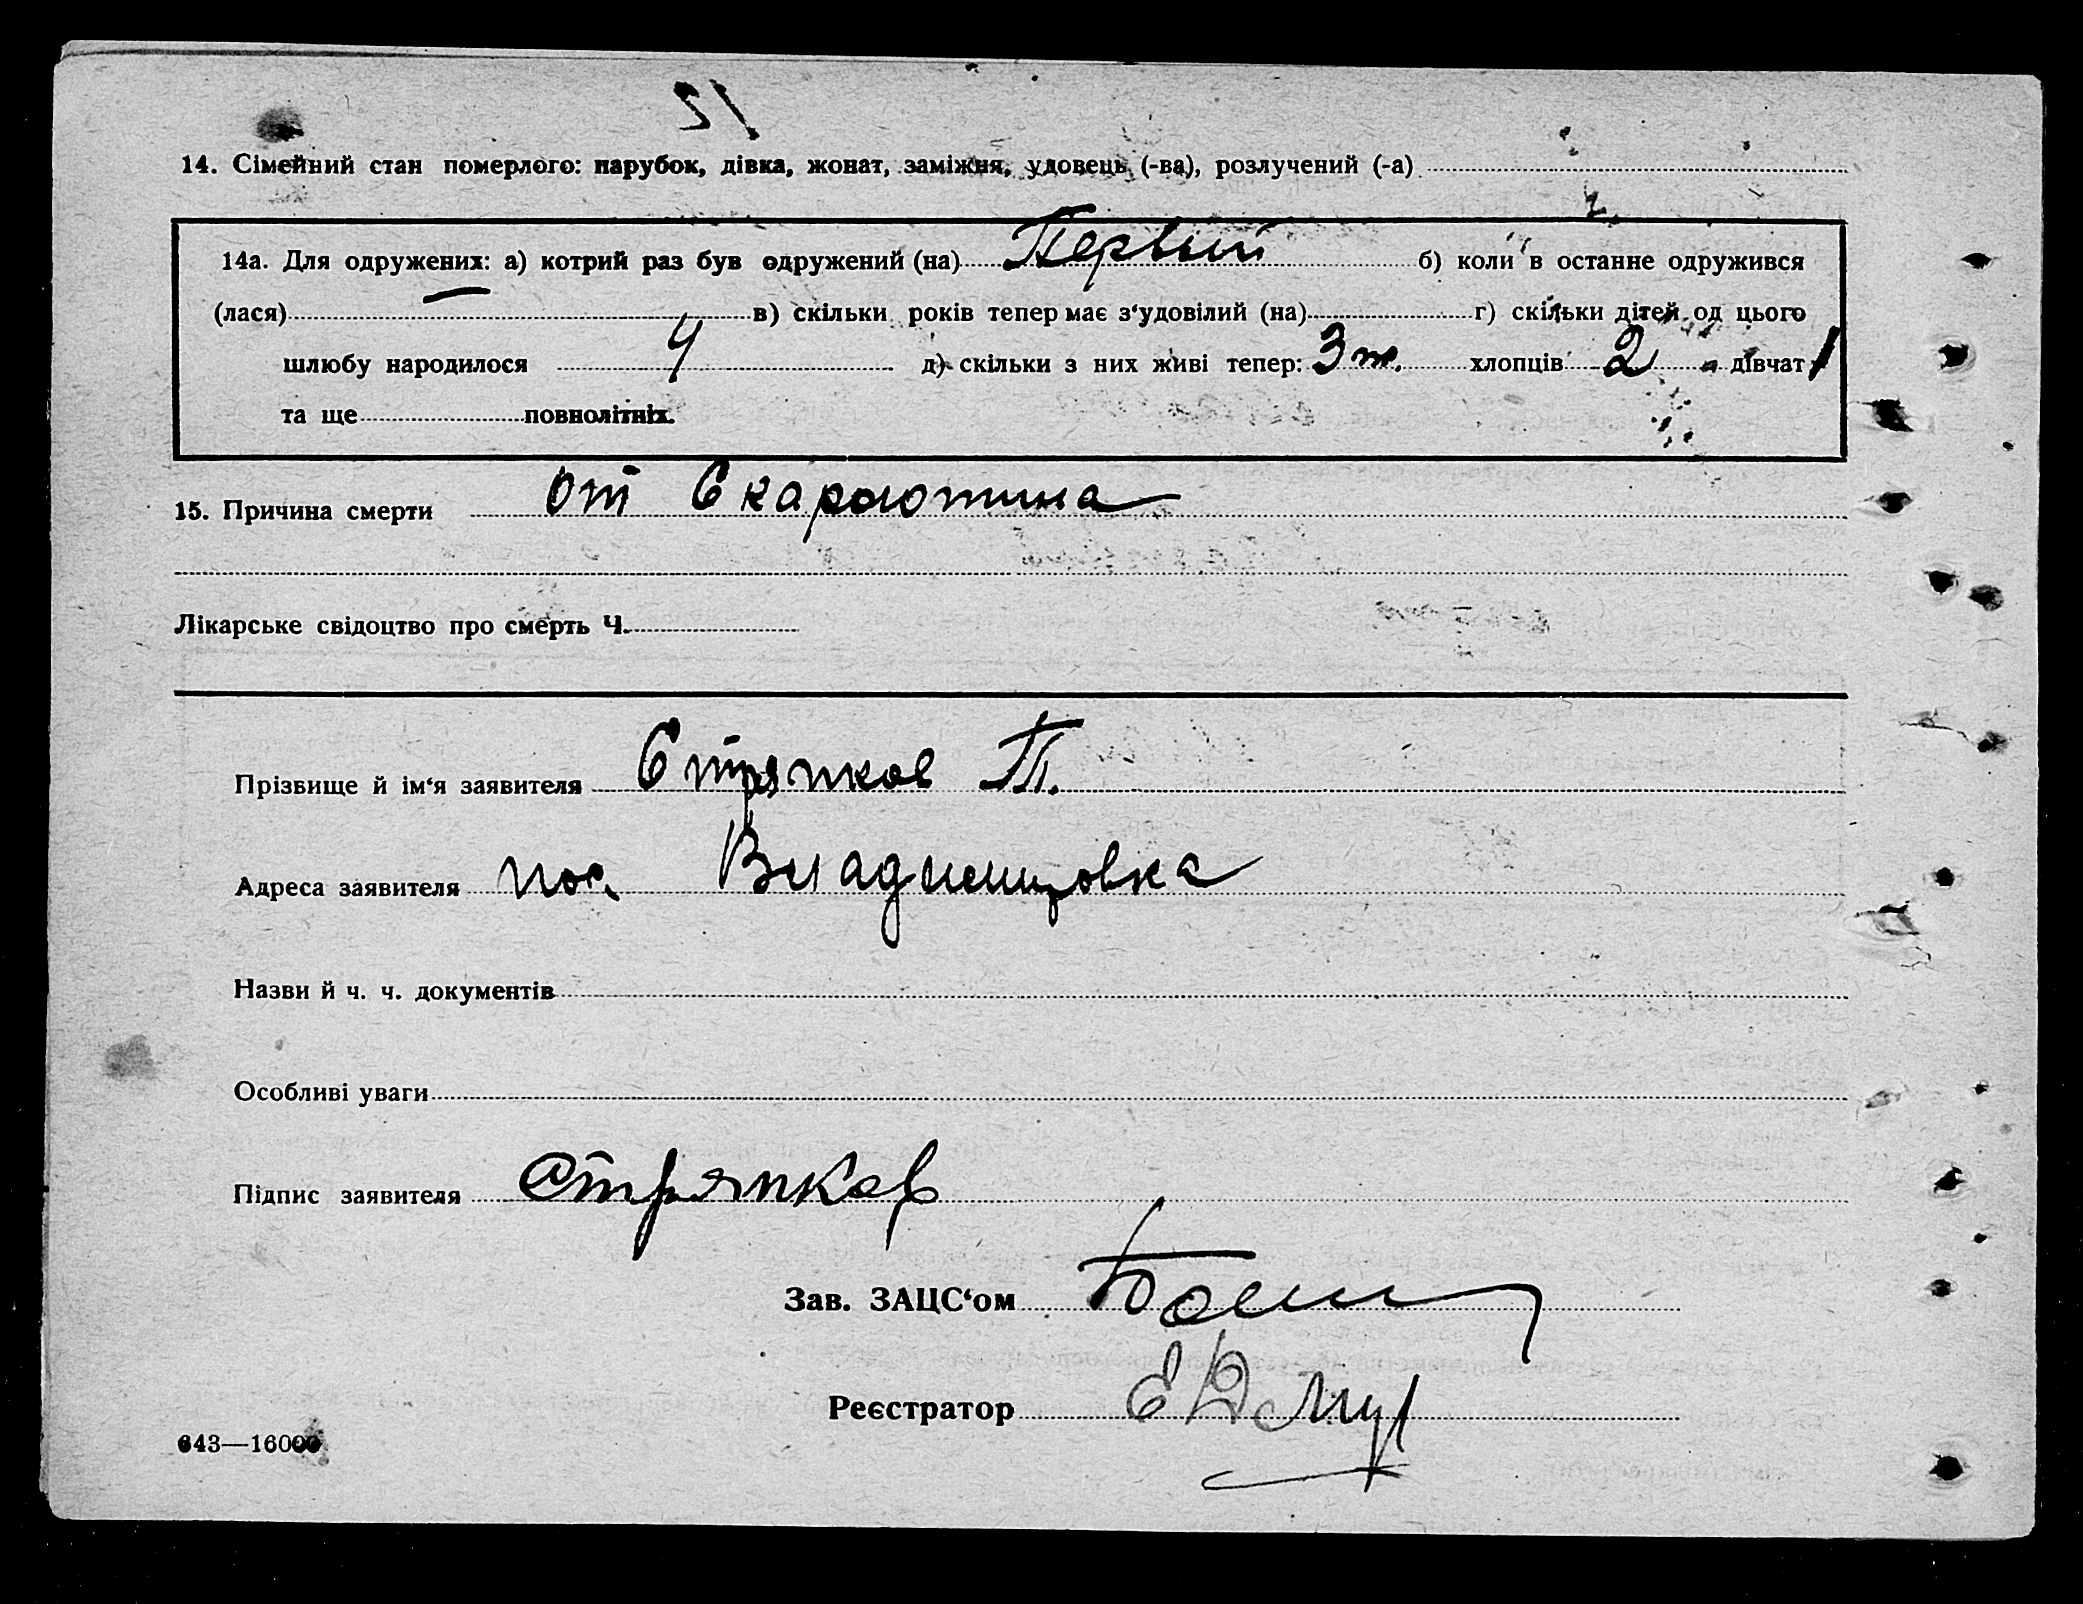 14. Сімейний стан померлого: парубок, дівка, жонат, заміжня, удовець (-ва), розлучений (-а)
14а. Для одружених: а) котрий раз був одружений (на) Первый б) коли в останне одружився
(лася) — в) скільки років тепер має з‘удовілий (на) г) скільки дітей од цього
шлюбу народилося 4 д) скільки з них живі тепер: 3 ж. хлопців 2 дівчат 1
та ще повнолітніх.
15. Причина смерти от Скарлютина
Лікарське свідоцтво про смерть Ч.
Прізвище й ім‘я заявителя Стряпков Т.
Адреса заявителя пос. Владимировка
Назви й ч. ч. документів
Особливі уваги
Підпис заявителя Стряпков
Зав. ЗАЦС‘ом
Реєстратор
643—16000